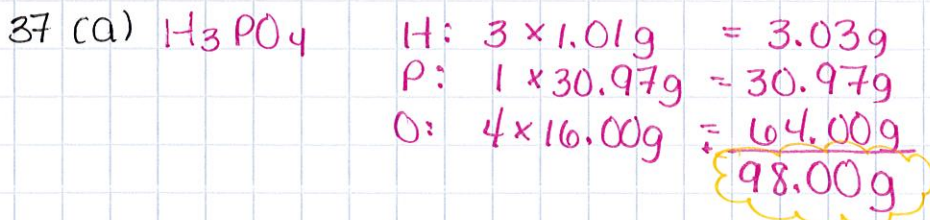 37 (a) H3PO4 H: 3 × 1.01g = 3.03g
P: 1 × 30.97g = 30.97g
O: 4 × 16.00g = + 64.00g
98.00g